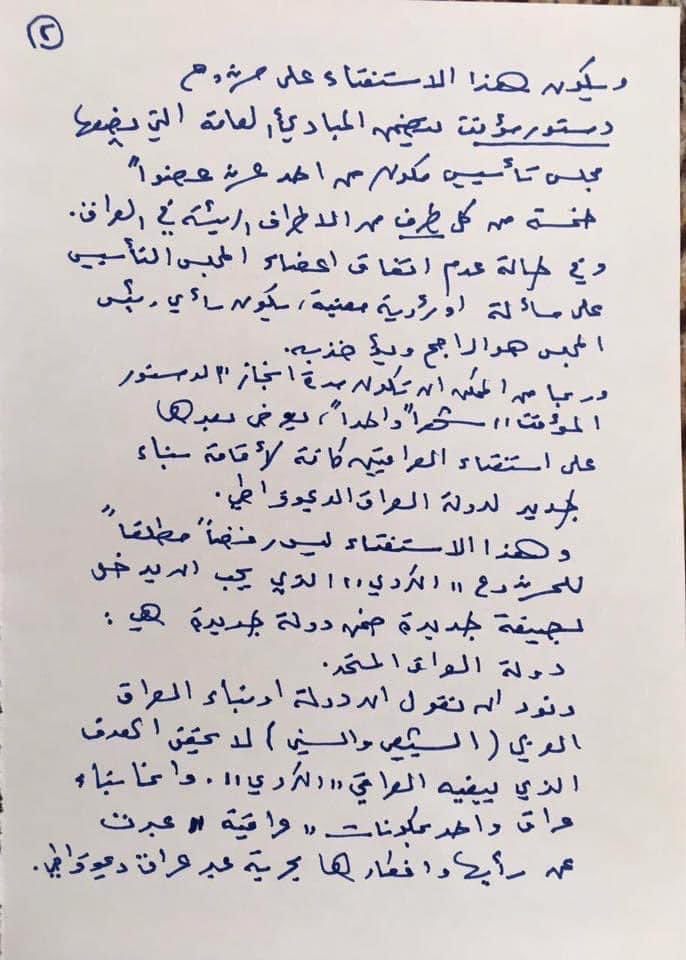 ٢
وسيكون هذا الاستفتاء على مشروع
دستور مؤقت يتضمن المبادئ العامة التي يضعها
مجلس تأسيسي مكون من احد عشر عضواً
خمسة من كل طرف من الاطراف الرئيسة في العراق.
وفي حالة عدم اتفاق اعضاء المجلس التأسيسي
على مسألة او رؤية معينة، يكون رأي رئيس
المجلس هو الراجح ويؤخذ به.
وربما من الممكن ان تكون مدة انجاز "الدستور
المؤقت" شهراً واحداً، يعرض بعدها
على استفتاء العراقيين كافة لأقامة بناء
جديد لدولة العراق الديموقراطي.
وهذا الاستفتاء ليس رفضاً مطلقاً
للمشروع "الكردي" الذي يجب ان يدخل
بصيغة جديدة ضمن دولة جديدة هي:
دولة العراق المتحد.
ونود ان نقول ان دولة او بناء العراق
العربي (الشيعي والسني) لا يحقق الهدف
الذي يبغيه العراقي "الكردي". وانما بناء
عراق واحد بمكونات "عراقية" عبرت
عن رأيها وافكارها بحرية عبر عراق ديموقراطي.